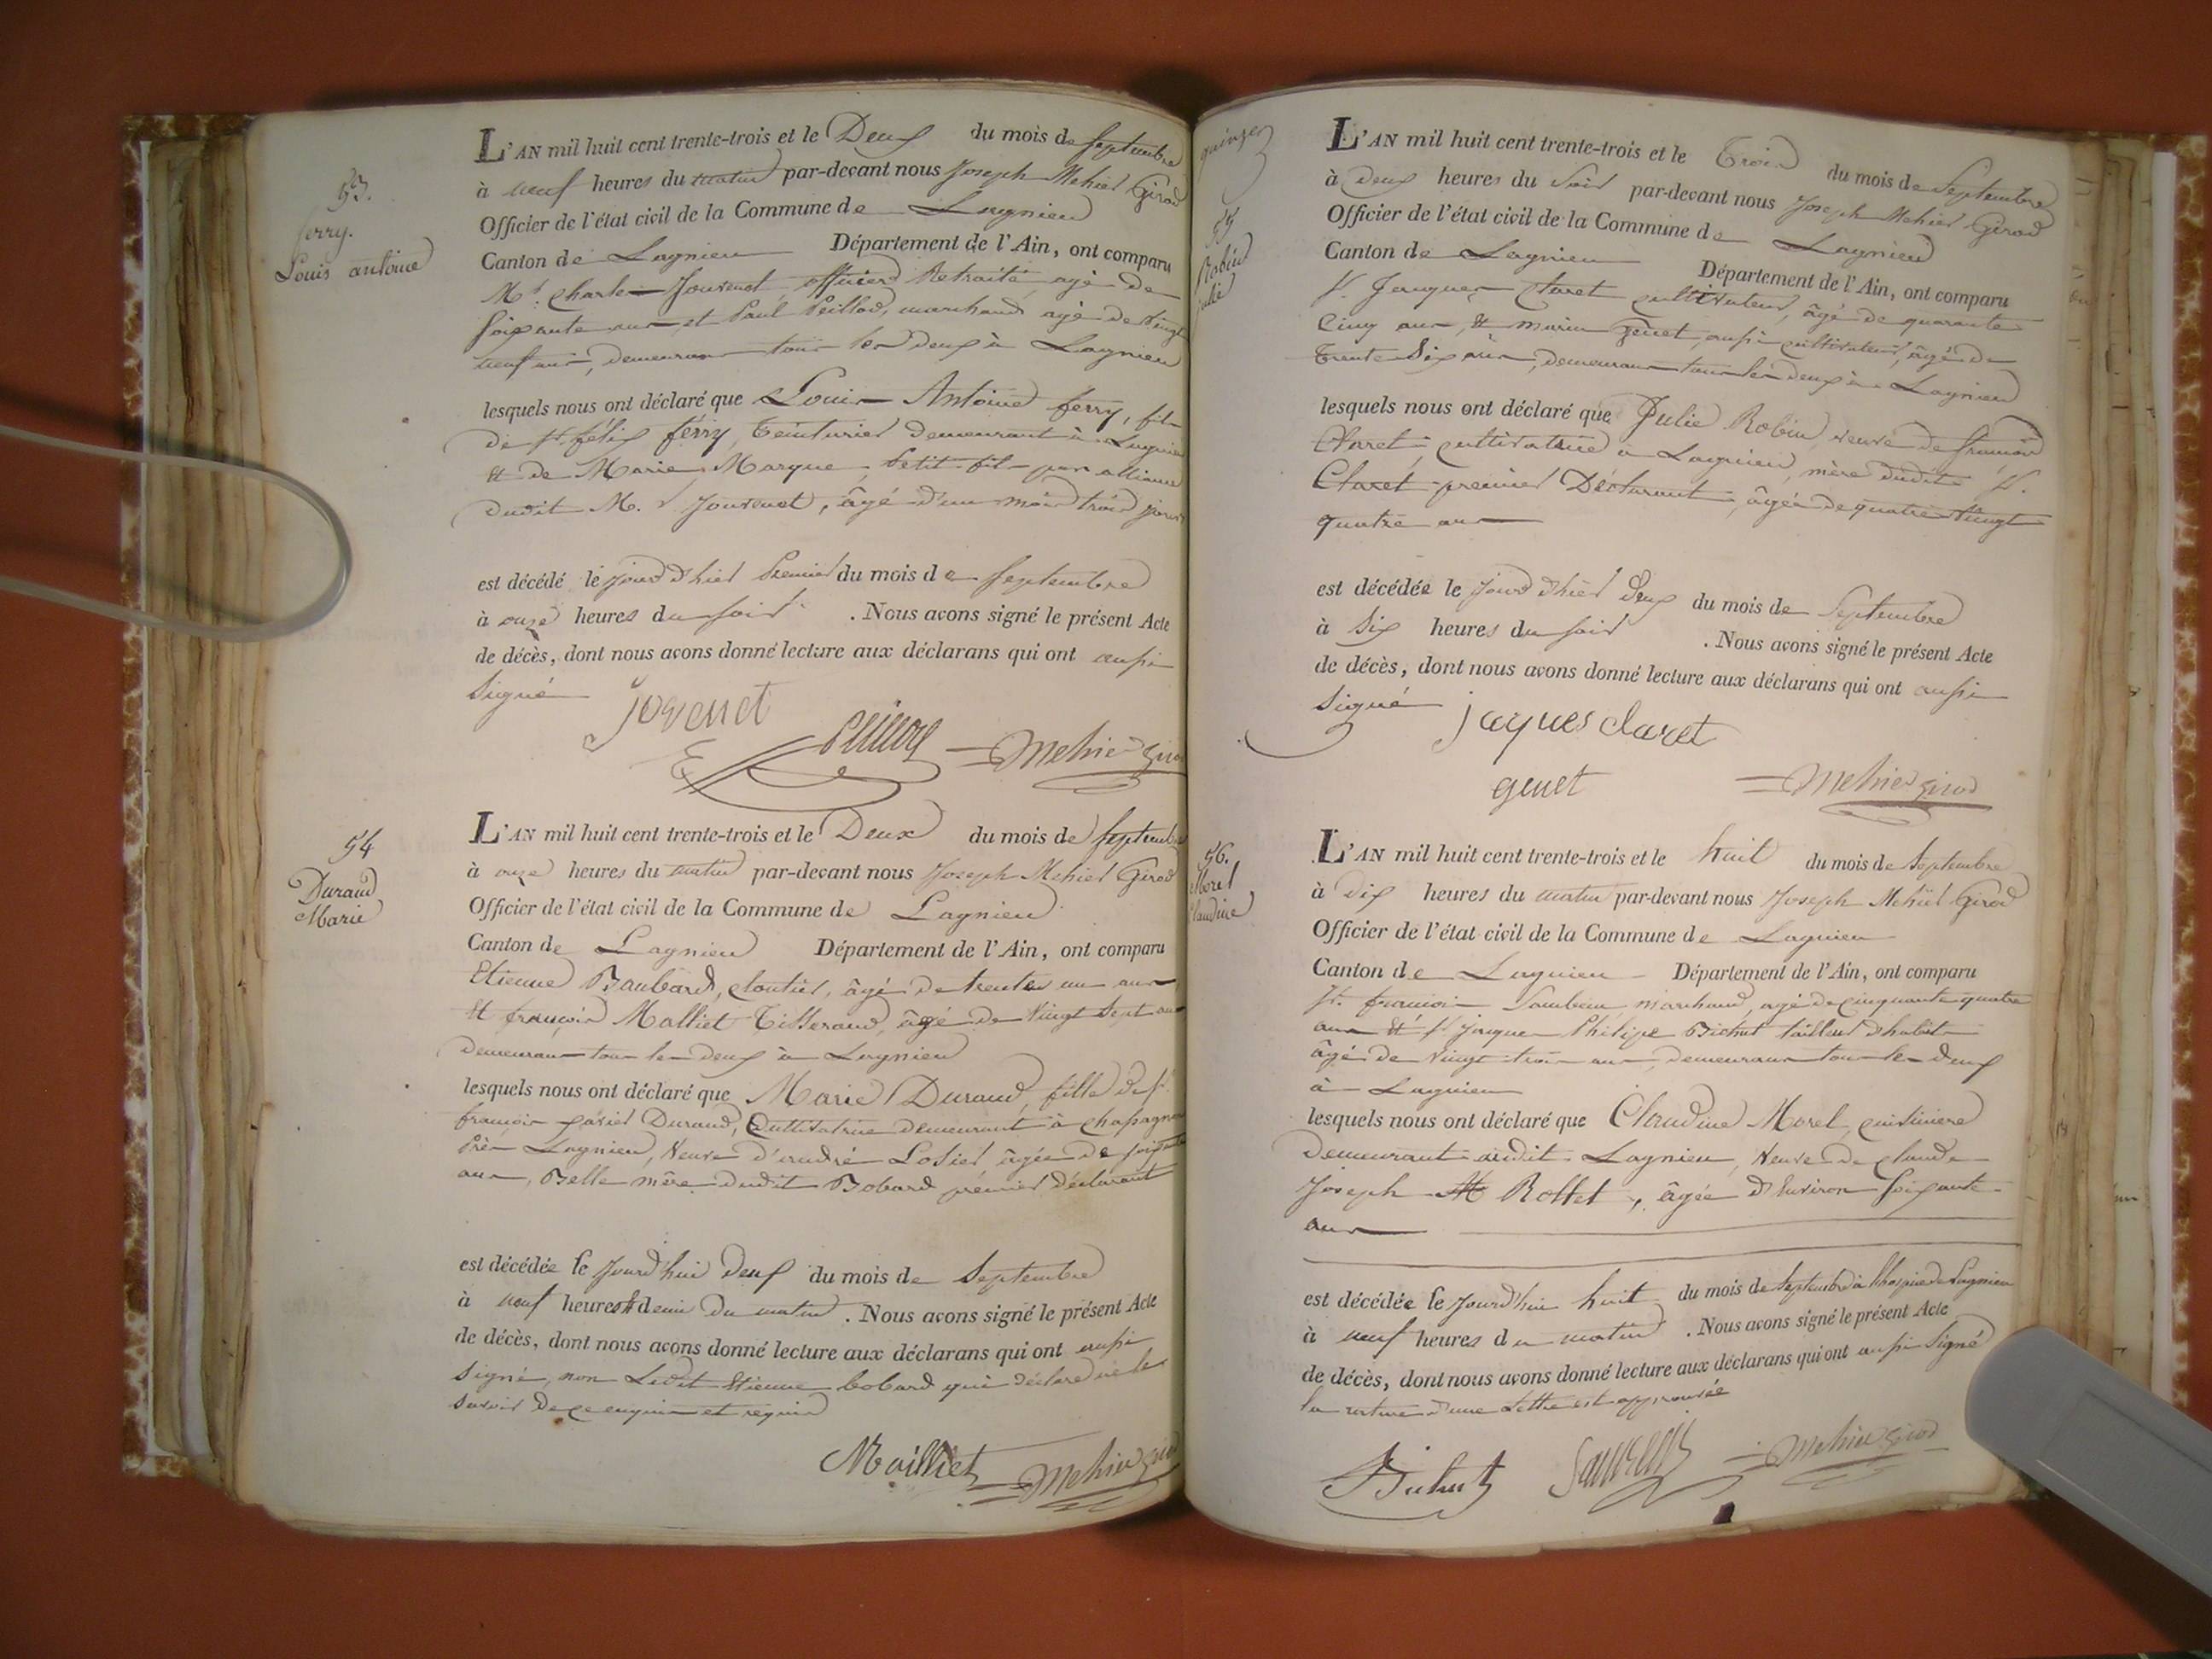 53.
ferry.
Louis antoine
L'AN mil huit cent trente-trois et le Deux du mois de septembre
à neuf heures du matin par-devant nous Joseph Mehier Girod
Officier de l'état civil de la Commune de Lagnieu
Canton de Lagnieu Département de l'Ain, ont comparu
Mr. Charles Jouvenet officier Retraité agé de
soixante ans et Paul Peillod, marchand agé de vingt
neuf ans, demeurans tous les deux à Lagnieu
lesquels nous ont déclaré que Louis Antoine ferry, fils
de Sr. félix férry, Teinturier demeurant à Lagnieu
et de Marie Marque, petit-fils par alliance
dudit M. r Jouvenet, âgé d'un mois trois jours
est décédé le jourd'hier premier du mois de septembre
à onze heures du soir . Nous avons signé le présent Acte
de décès, dont nous avons donné lecture aux déclarans qui ont aussi
signé
jovenet
Peillod
Mehier Girod
54
Durand
Marie
L'AN mil huit cent trente-trois et le Deux du mois de septembre
à onze heures du matin par-devant nous Joseph Mehier Girod
Officier de l'état civil de la Commune de Lagnieu
Canton de Lagnieu Département de l'Ain, ont comparu
Etienne Baubard, cloutier, âgé de trente un ans
et françois Malliet Tisserand, âgé de vingt sept ans
demeurans tous les deux à Lagnieu
lesquels nous ont déclaré que Marie Durand, fille de Sr
françois Durand, Cultivatrice demeurant à
près Lagnieu, veuve d'andré Losier, âgée de soixante
ans, Belle mère dudit Bobard premier déclarant
est décédée le jourd'hui deux du mois de Septembre
à neuf heures et demie du matin . Nous avons signé le présent Acte
de décès, dont nous avons donné lecture aux déclarans qui ont aussi
signé, non Ledit Etienne bobard qui déclare ne le
savoir de ce enquis et requis
Mailliet
Mehier Girod
55
Robin
julie
L'AN mil huit cent trente-trois et le Trois du mois de Septembre
à Deux heures du Soir par-devant nous Joseph Mehier Girod
Officier de l'état civil de la Commune de Lagnieu
Canton de Lagnieu Département de l'Ain, ont comparu
Sr. Jacques Claret cultivateur, âgé de quarante
Cinq ans, et marin genet, aussi cultivateur, âgé de
Trente Six ans, demeurans tous les deux à Lagnieu
lesquels nous ont déclaré que Julie Robin, veuve de françois
Claret, cultivatrice a Lagnieu, mère dudit Sr.
Claret premier Déclarant, âgée de quatre vingt
quatre ans
est décédée le jourd'hier deux du mois de Septembre
à Six heures du soir . Nous avons signé le présent Acte
de décès, dont nous avons donné lecture aux déclarans qui ont aussi
signé
jaques claret
genet
Mehier Girod
56.
Morel
Claudine
L'AN mil huit cent trente-trois et le huit du mois de Septembre
à dix heures du matin par-devant nous Joseph Mehier Girod
Officier de l'état civil de la Commune de Lagnieu
Canton de Lagnieu Département de l'Ain, ont comparu
Sr. françois marchand, agé de cinquante quatre
ans et Sr jaques Philipe Bichut tailleur d'habits
âgé de vingt trois ans, demeurans tous les deux
à Lagnieu
lesquels nous ont déclaré que Claudine Morel, cuisiniere
Demeurant audit Lagnieu, Veuve de claude
Joseph Rollet, âgée d'Environ soixante
ans
est décédée le jourd'hui huit du mois de Septembre à l'hospice de Lagnieu
à neuf heures du matin . Nous avons signé le présent Acte
de décès, dont nous avons donné lecture aux déclarans qui ont aussi Signé
la rature d'une Lettre est approuvée
Bichut
Mehier Girod